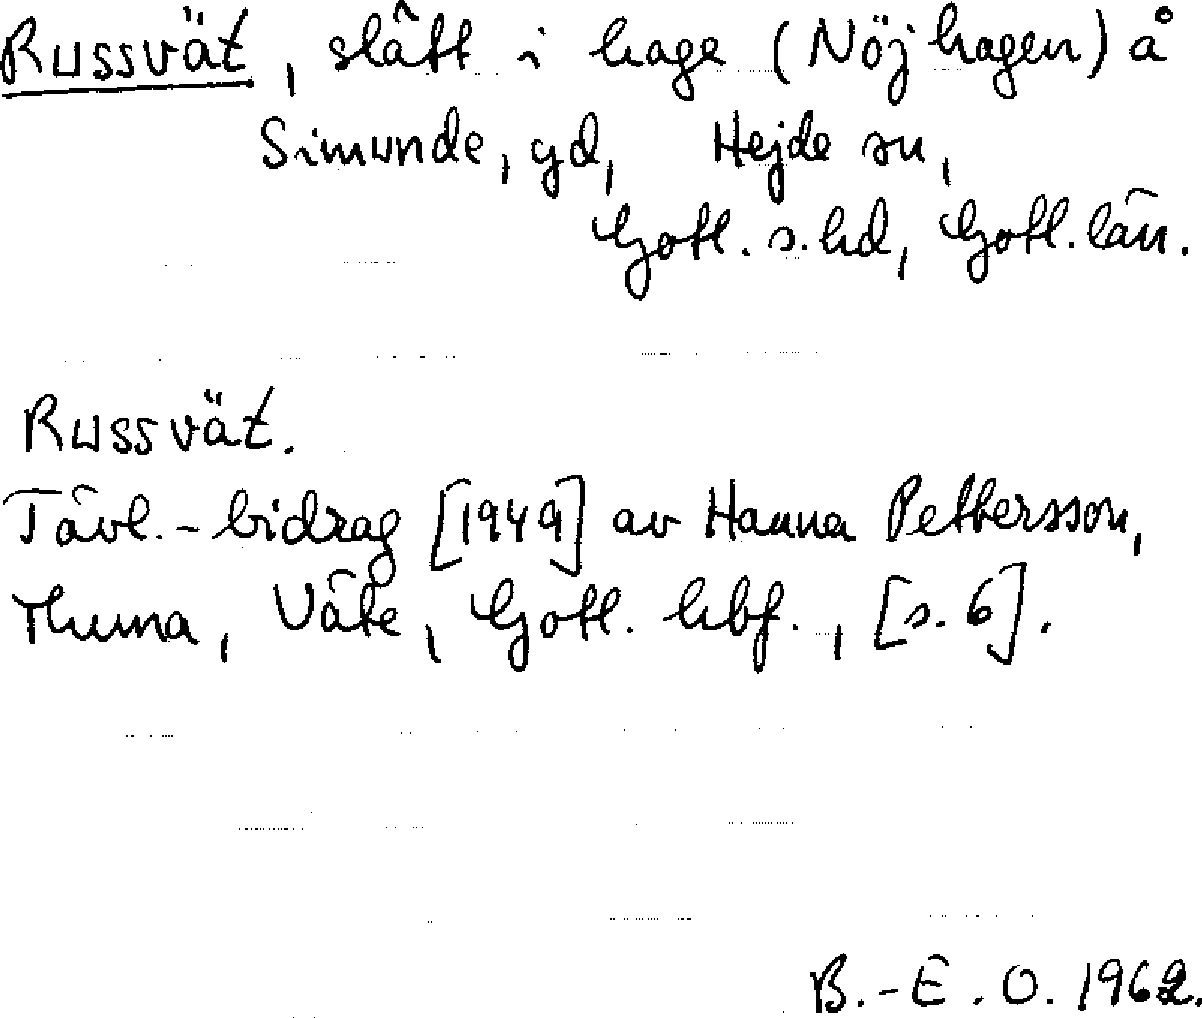 Russvät, slätt i hage (Nöjhagen) å
Simunde, gd, Hejde sn,
Gotl. s. hd, Gotl. län.
Russvät.
Tävl.-bidrag [1949] av Hanna Pettersson,
Thuna, Väte, Gotl. hbf., [s. 6].
B.-E. O. 1962.